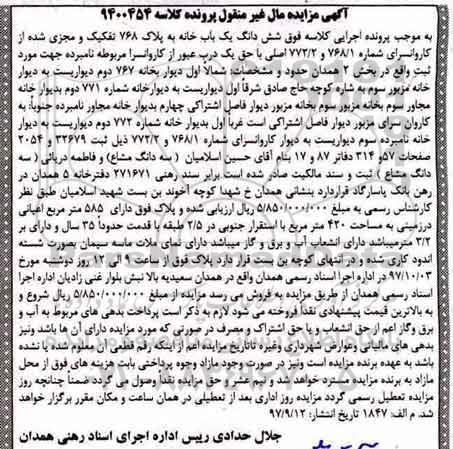 آگهی مزایده مال غیر منقول پرونده کلاسه ۹۴۰۰۴۵۴
به موجب پرونده اجرایی کلاسه فوق شش دانگ یک باب خانه به پلاک ۷۶۸ تفکیک و مجزی شده از
کاروانسرای شماره ۷۶۸/۱ و ۷۷۳/۲ اصلی با حق یک درب عبور از کاروانسرا مربوطه نامبرده جهت مورد
ثبت واقع در بخش ۲ همدان حدود و مشخصات: شمالا اول دیوار بخانه ۷۶۷ دوم دیواریست به دیوار
خانه مزبور سوم به شاره کوچه حاج صادق شرقا اول دیواریست به دیوارخانه شماره ۷۷۱ دوم بدیوارخانه
مجاور سوم بخانه مزبور سوم بخانه مزبور دیوار فاصل اشتراکی چهارم بدیوار خانه مجاور نامبرده جنوبا: به
کاروان سرای مزبور دیوار فاصل اشتراکی است غربا اول بدیوار خانه شماره ۷۷۲ دوم دیواریست به دیوار
خانه نامبرده سوم دیواریست به دیوار کاروانسرای شماره ۷۶۸/۱ و ۷۷۲/۲ ذیل ثبت ۳۲۶۷۹ و ۲۰۵۴
صفحات ۵۷و ۳۱۴ دفاتر ۸۷ و ۱۷ بنام آقای حسین اسلامیان ( سه دانگ مشاع) و فاطمه دربانی ( سه
دانگ مشاع ) ثبت و سند مالکیت صادر شده است. برابر سند رهنی ۲۷۱۶۷۱ دفترخانه ۵ همدان در
رهن بانک پاسارگاد قراردارد بنشانی همدان خ شهدا کوچه آخوند بن بست شهید اسلامیان طبق نظر
کارشناس رسمی به مبلغ ۵/۸۵۰/۰۰۰/۰۰۰ ریال ارزیابی شده و پلاک فوق دارای ۵۸۵ متر مربع اعیانی
درزمینی به مساحت ۴۲۰ متر مربع با استقرار جنوبی در ۲/۵ طبقه با قدمت حدودا ۳۵ سال و دارای بر
۳/۲ مترمیباشد دارای انشعاب آب و برق و گاز میباشد دارای نمای ملات ماسه سیمان بصورت شسته
اندود کاری شده و در انتهای کوچه بن بست قرار دارد پلاک فوق از ساعت ۹ الی ۱۲ روز دوشنبه مورخ
۹۷/۱۰/۰۳ در اداره اجرا اسناد رسمی همدان واقع در همدان سعیدیه بالا نبش بلوار غنی زادیان اداره اجرا
اسناد رسمی همدان از طریق مزایده به فروش می رسد مزایده از مبلغ ۵/۸۵۰/۰۰۰/۰۰۰ ریال شروع و
به بالاترین قیمت پیشنهادی نقدا فروخته می شود لازم به ذکر است پرداخت بدهی های مربوط به آب و
برق وگاز اعم از حق انشعاب و یا حق اشتراک و مصرف در صورتی که مورد مزایده دارای آن ها باشد ونیز
بدهی های مالیاتی وعوارض شهرداری وغیره تاتاریخ مزایده اعم از اینکه رقم قطعی آن معلوم شده یا نشده
باشد به عهده برنده مزایده است ونیز در صورت وجود مازاد وجوه پرداختی بابت هزینه های فوق از محل
مازاد به برنده مزایده مسترد خواهد شد و نیم عشر و حق مزایده نقدا وصول می گردد ضمنا چنانچه روز
مزایده تعطیل رسمی گردد مزایده روز اداری بعد از تعطیلی در همان ساعت و مکان مقرر برگزار خواهد
شد. م الف: ۱۸۴۷ تاریخ انتشار: ۹۷/۹/۱۲
جلال حدادی رییس اداره اجرای اسناد رهنی همدان